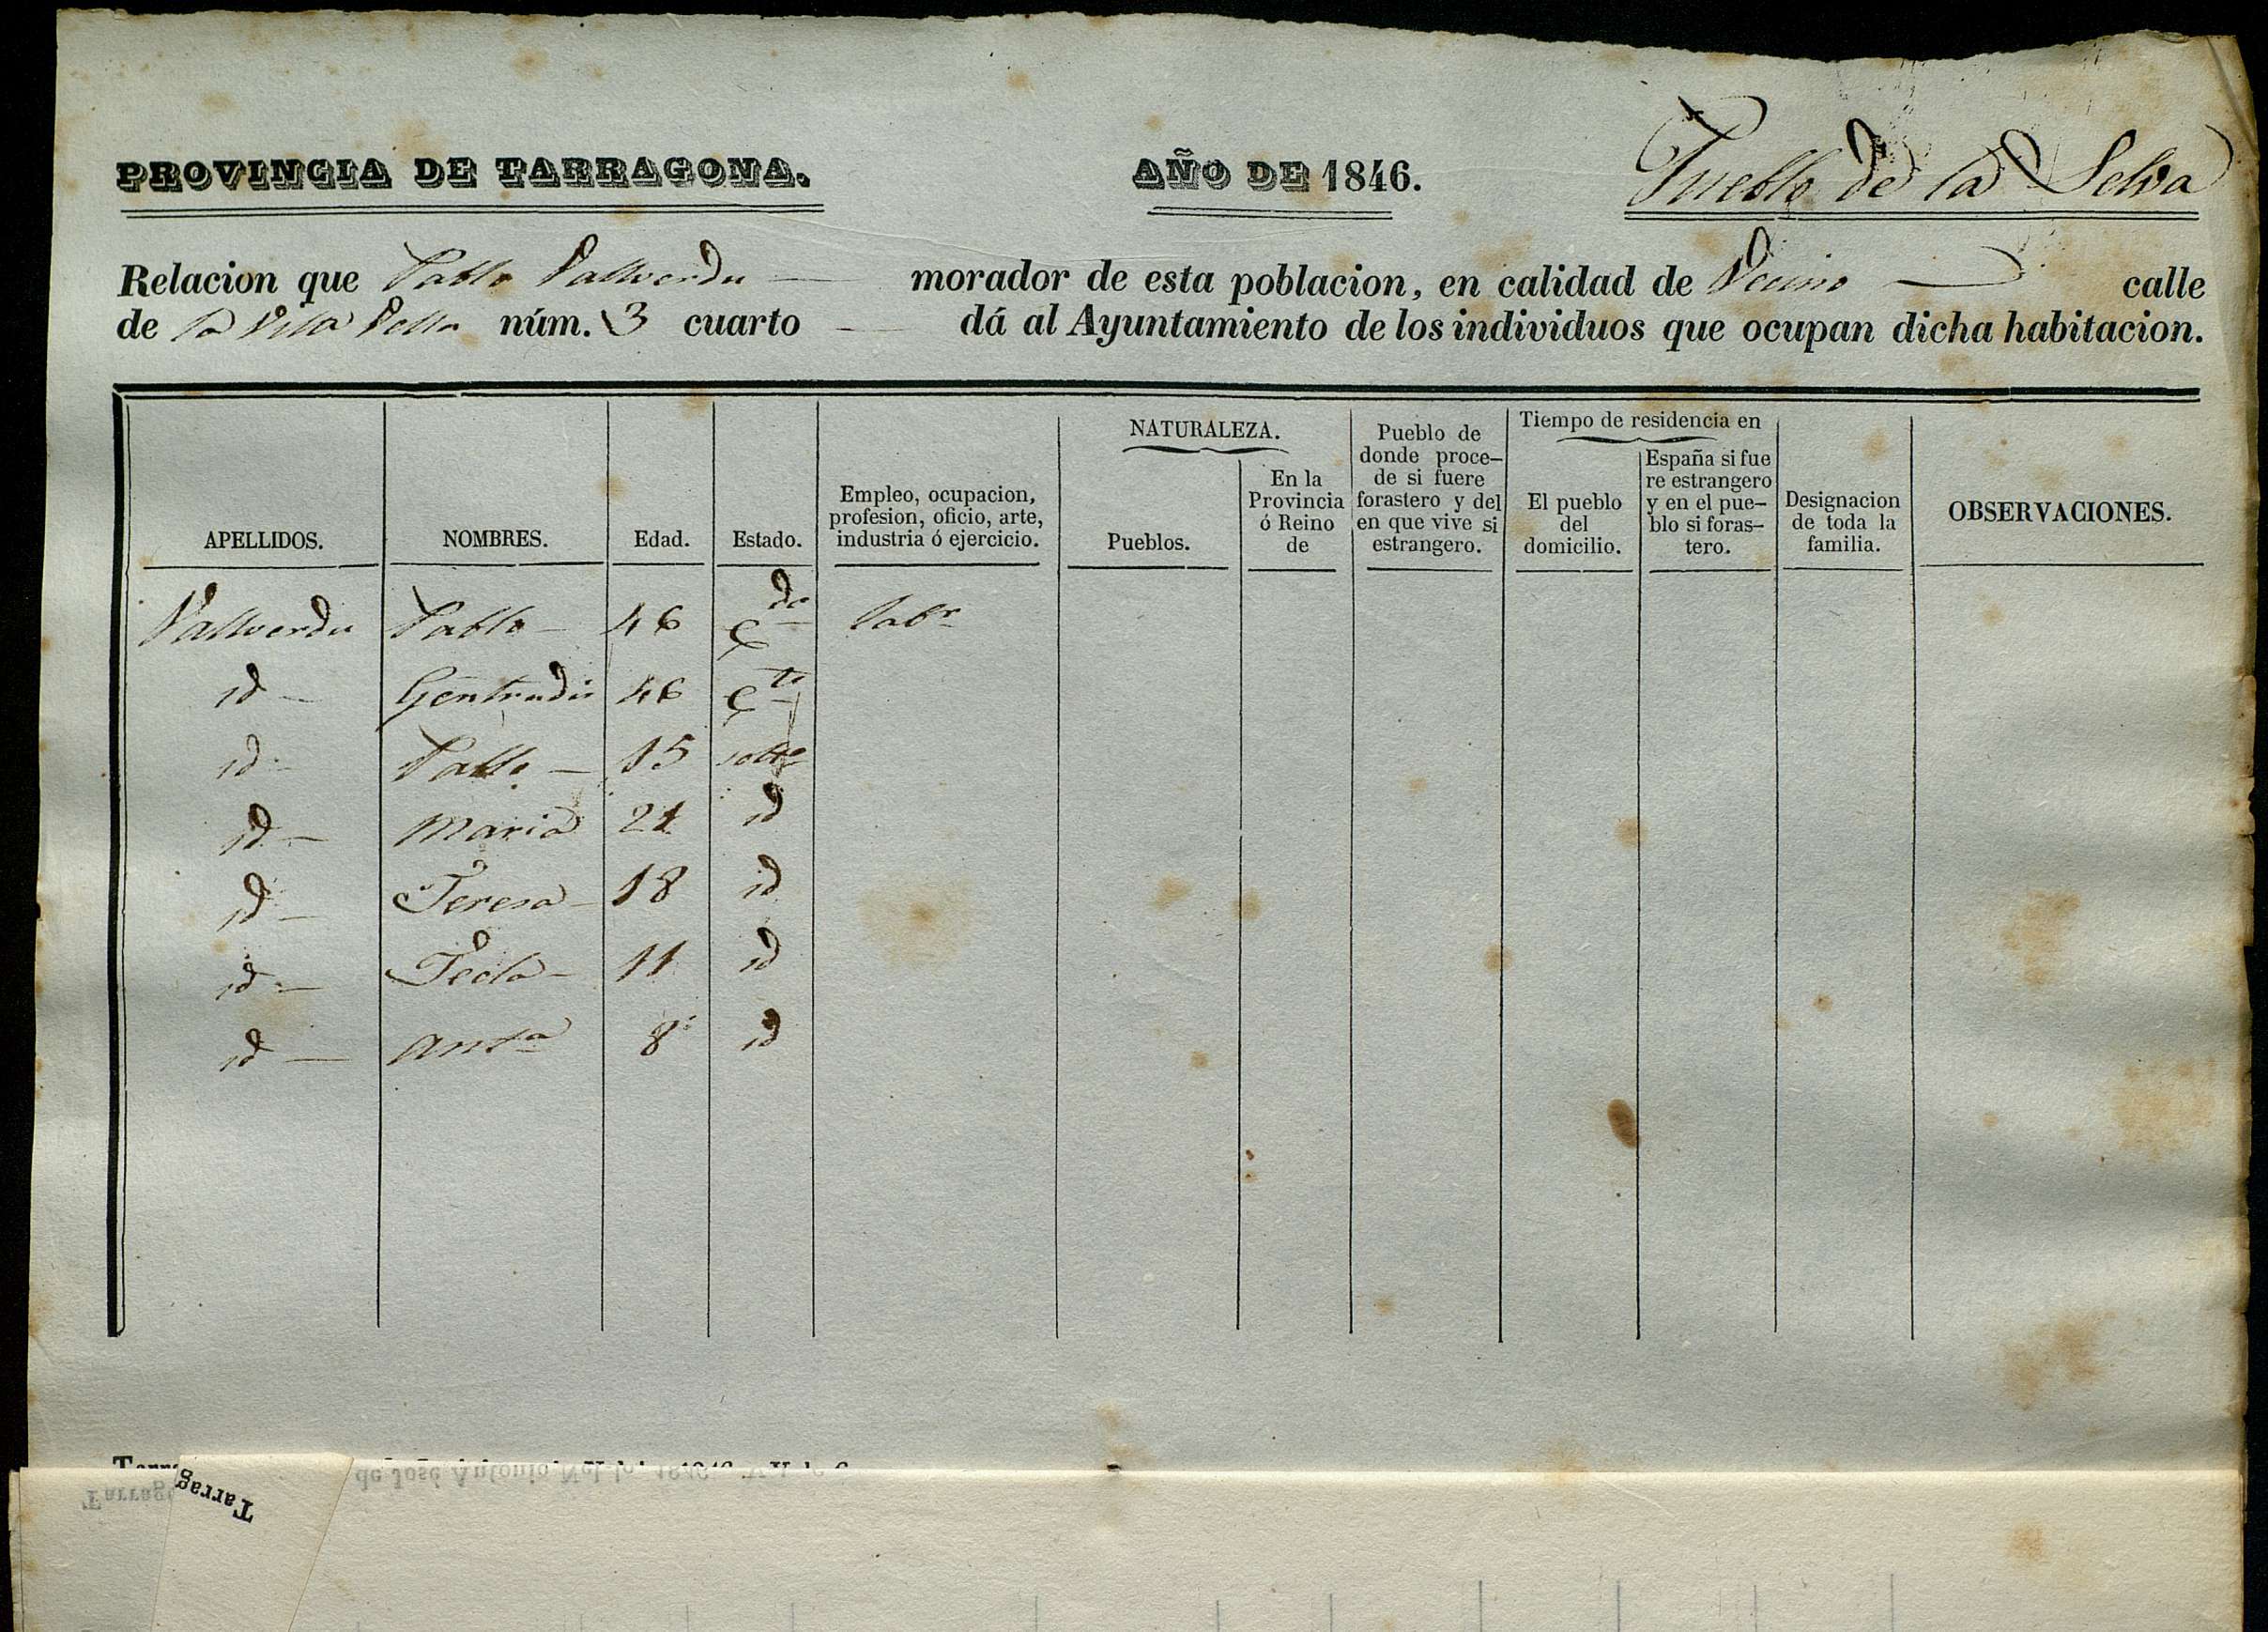 PROVINCIA DE TARRAGONA. AÑO DE 1846. Pueblo de la Selva
Relacion que Pablo Vallverdu — morador de esta poblacion, en calidad de Vecino — calle
de la Vila Vella núm. 3 cuarto — dá al Ayuntamiento de los individuos que ocupan dicha habitacion.
APELLIDOS.
NOMBRES.
Edad.
Estado.
Empleo, ocupacion,
profesion, oficio, arte,
industria ó ejercicio.
NATURALEZA.
Pueblos.
En la
Provincia
ó Reino
de
Pueblo de
donde proce-
de si fuere
forastero y del
en que vive si
estrangero.
Tiempo de residencia en
El pueblo
del
domicilio.
España si fue
re estrangero
y en el pue-
blo si foras-
tero.
Designacion
de toda la
familia.
OBSERVACIONES.
Vallverdu Pablo — 46 C.do labr
id — Gertrudis 46 C.ta
id — Pablo — 15 solto
id — Maria 21 id
id — Teresa — 18 id
id — Tecla — 11 id
id — Anta 8 id
de José Antonio Nel-lo
Tarrag